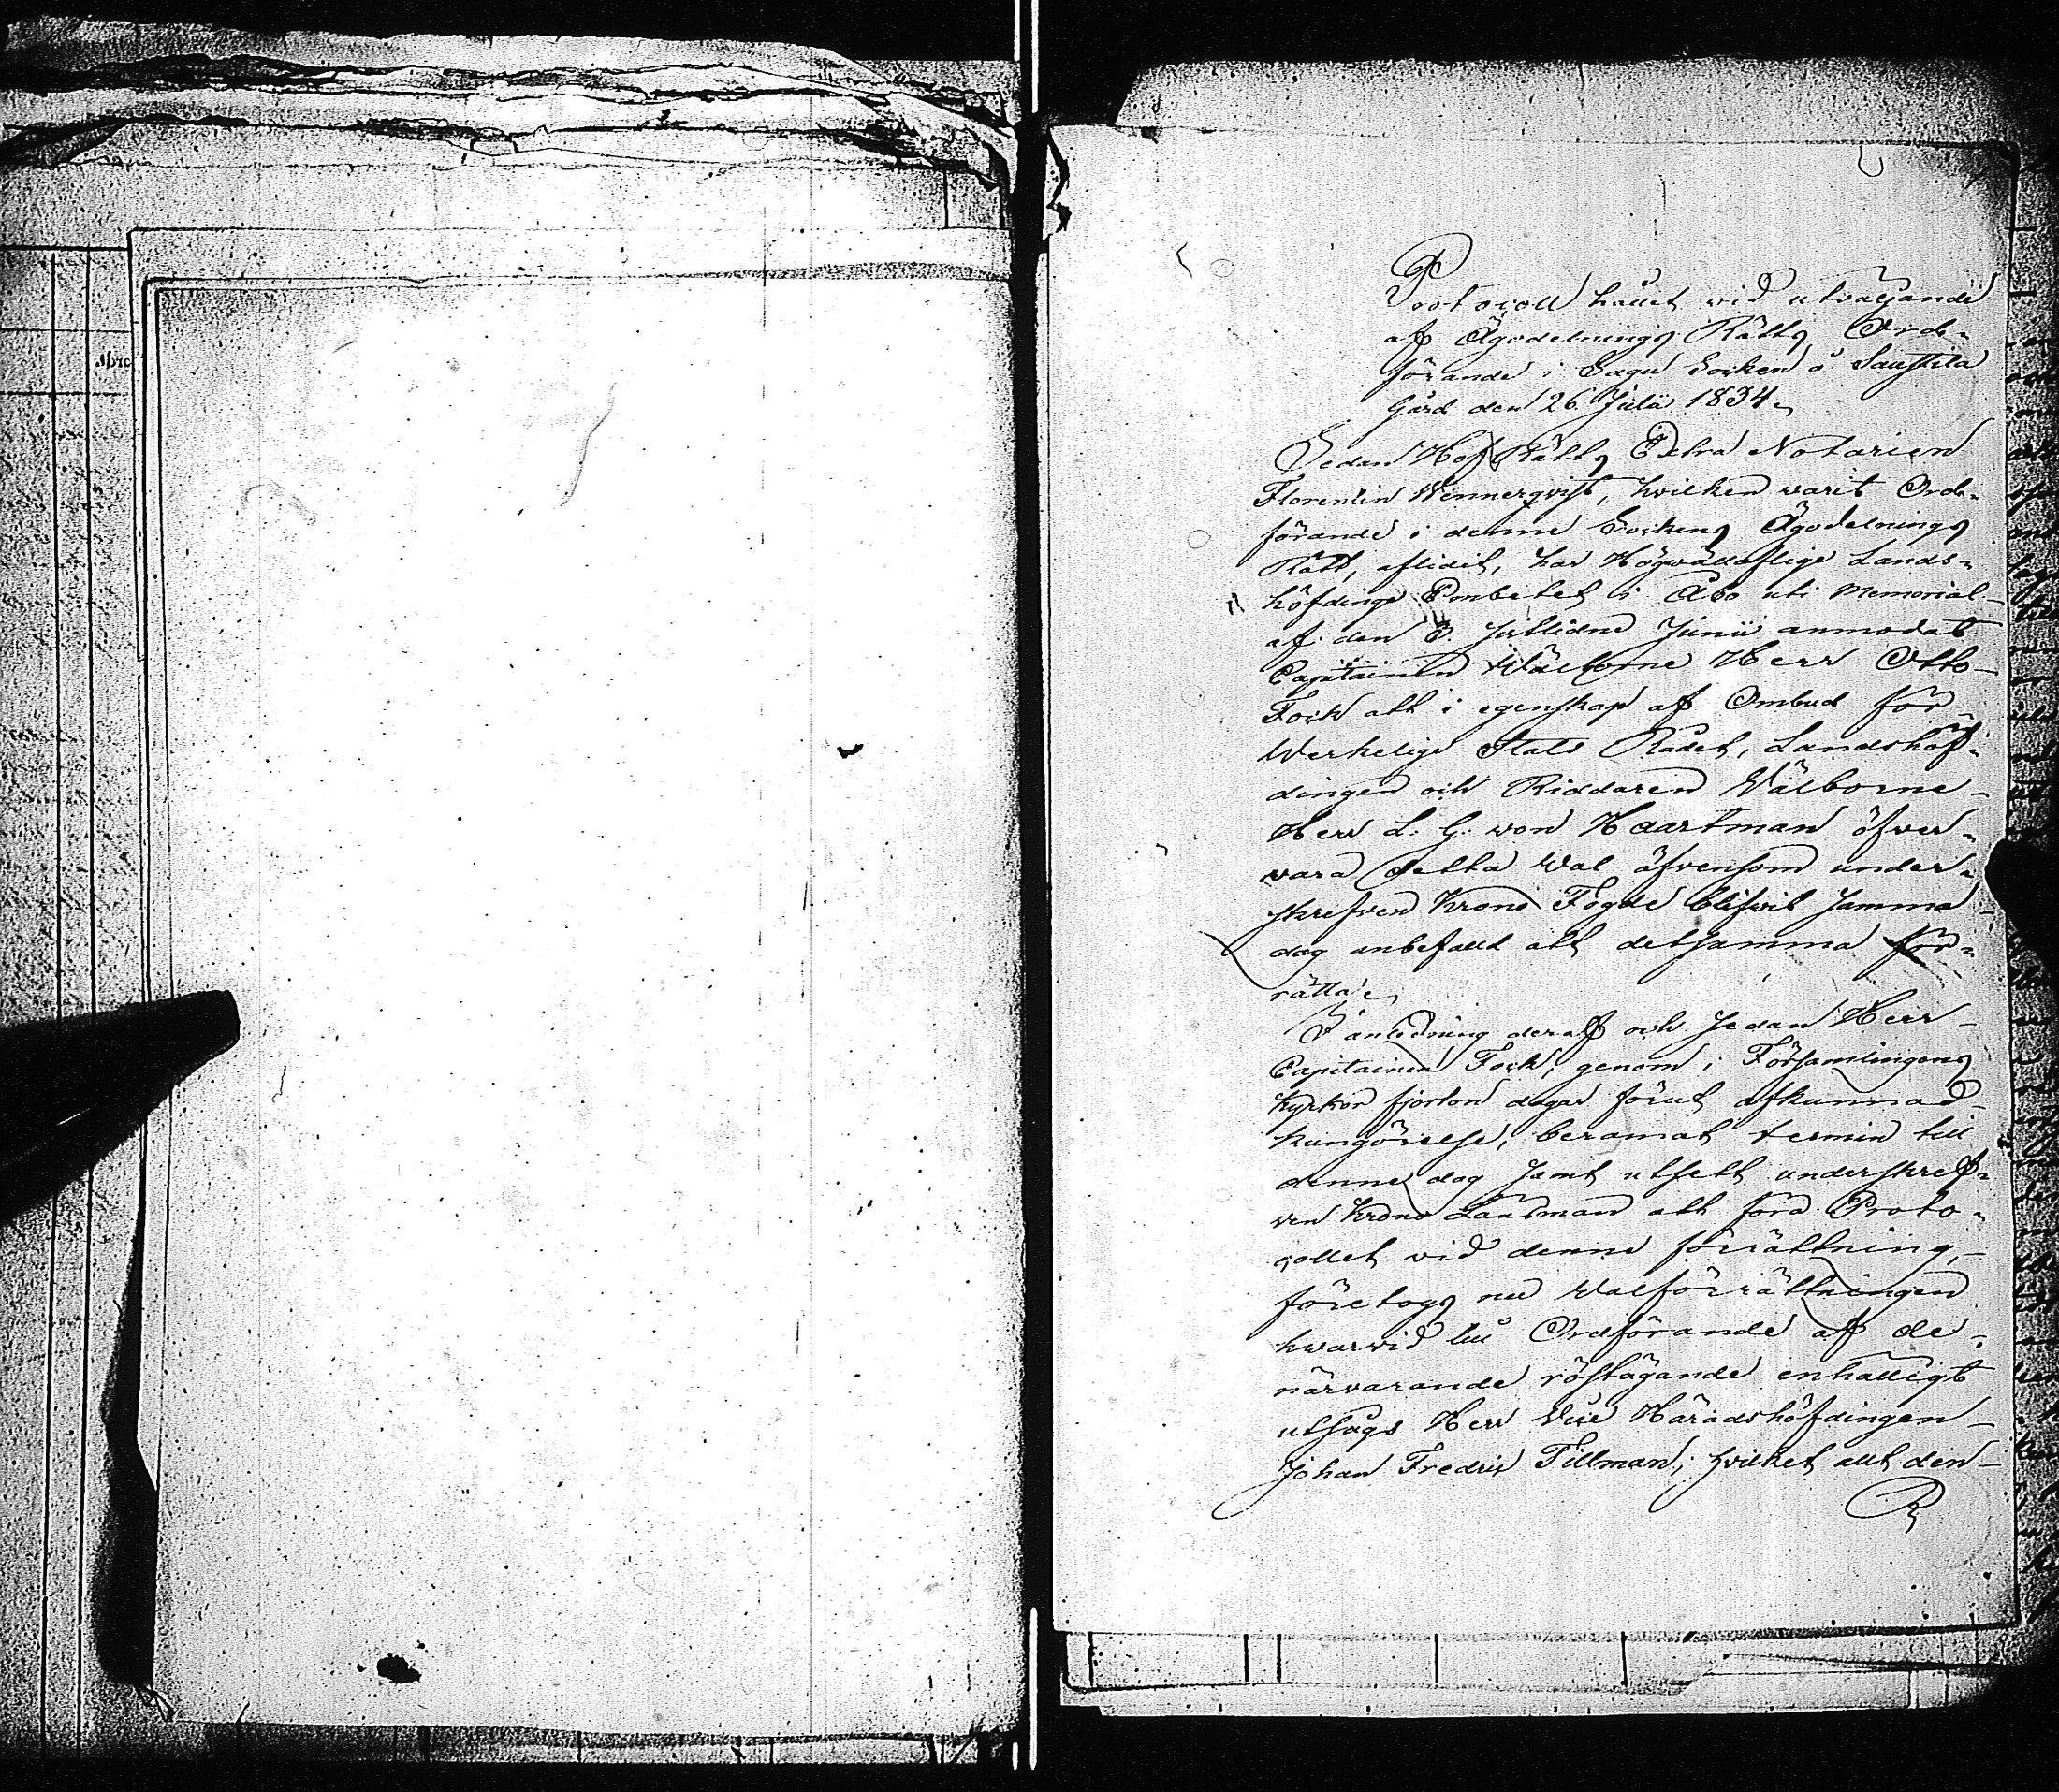 Protocoll hållet wid utwäljande
af Ägodelnings Rätts Ord-
förande i Sagu Socken å Saustila
Gård den 26 Julii 1834.
Sedan Hof Rätts Extra Notarien
Florentin Wennerqvist, hvilken varit Ord-
förande i denne Sockens Ägodelnings
Rätt, aflidit, har Högwällofliga Lands-
höfdinge Embetet i Åbo uti Memorial
af den sistlidne Junii anmodat
Capitainen Wälborne Herr Otto
Fock att i egenskap af Ombud för
Werkelige Stats Rådet, Landshöf-
dingen och Riddaren Wälborne
Herr L. G. von Haartman öfver-
vara detta Wal äfvensom under-
skrefven Krono Fogde blifvit samma
dag anbefalld att detsamma för-
rätta.
I anledning deraf och sedan Herr
Capitainen Fock, genom i Församlingens
Kyrkor fjorton dagar förut afkunnad
kungörelse, beramat termin till
denne dag samt utsett underskref-
ven Krono Länsman att föra Proto-
collet vid denne förrättning,
företogs nu Walförrättningen
hwarvid till Ordförande af de
närvarande röstägande enhälligt
utsågs Herr Vice Häradshöfdingen
Johan Fredric Tillman; hvilket allt den-